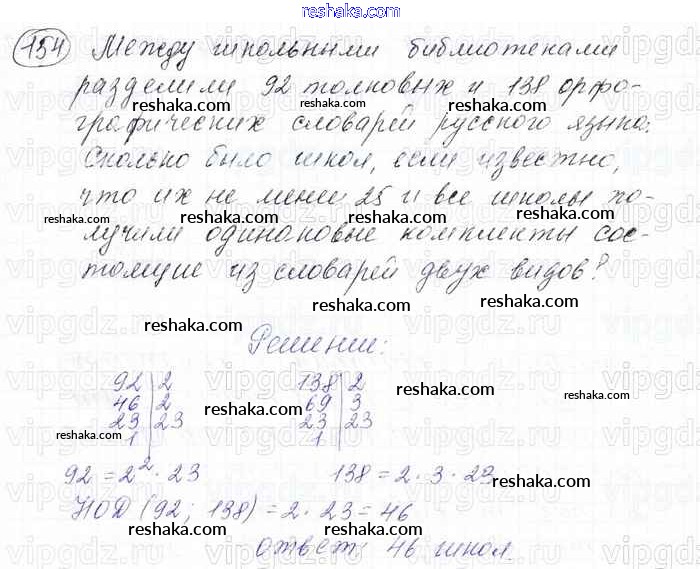 reshaka.com
154 Между школьными библиотеками
разделили 92 толковых и 138 орфо-
графических словарей русского языка.
Сколько было школ, если известно,
что их не менее 25 и все школы по-
лучили одинаковые комплекты сос-
тоящие из словарей двух видов?
Решение:
92 | 2 138 | 2
46 | 2 69 | 3
23 | 23 23 | 23
1 | 1 |
92 = 2² · 23 138 = 2 · 3 · 23
НОД (92; 138) = 2 · 23 = 46
ответ: 46 школ.